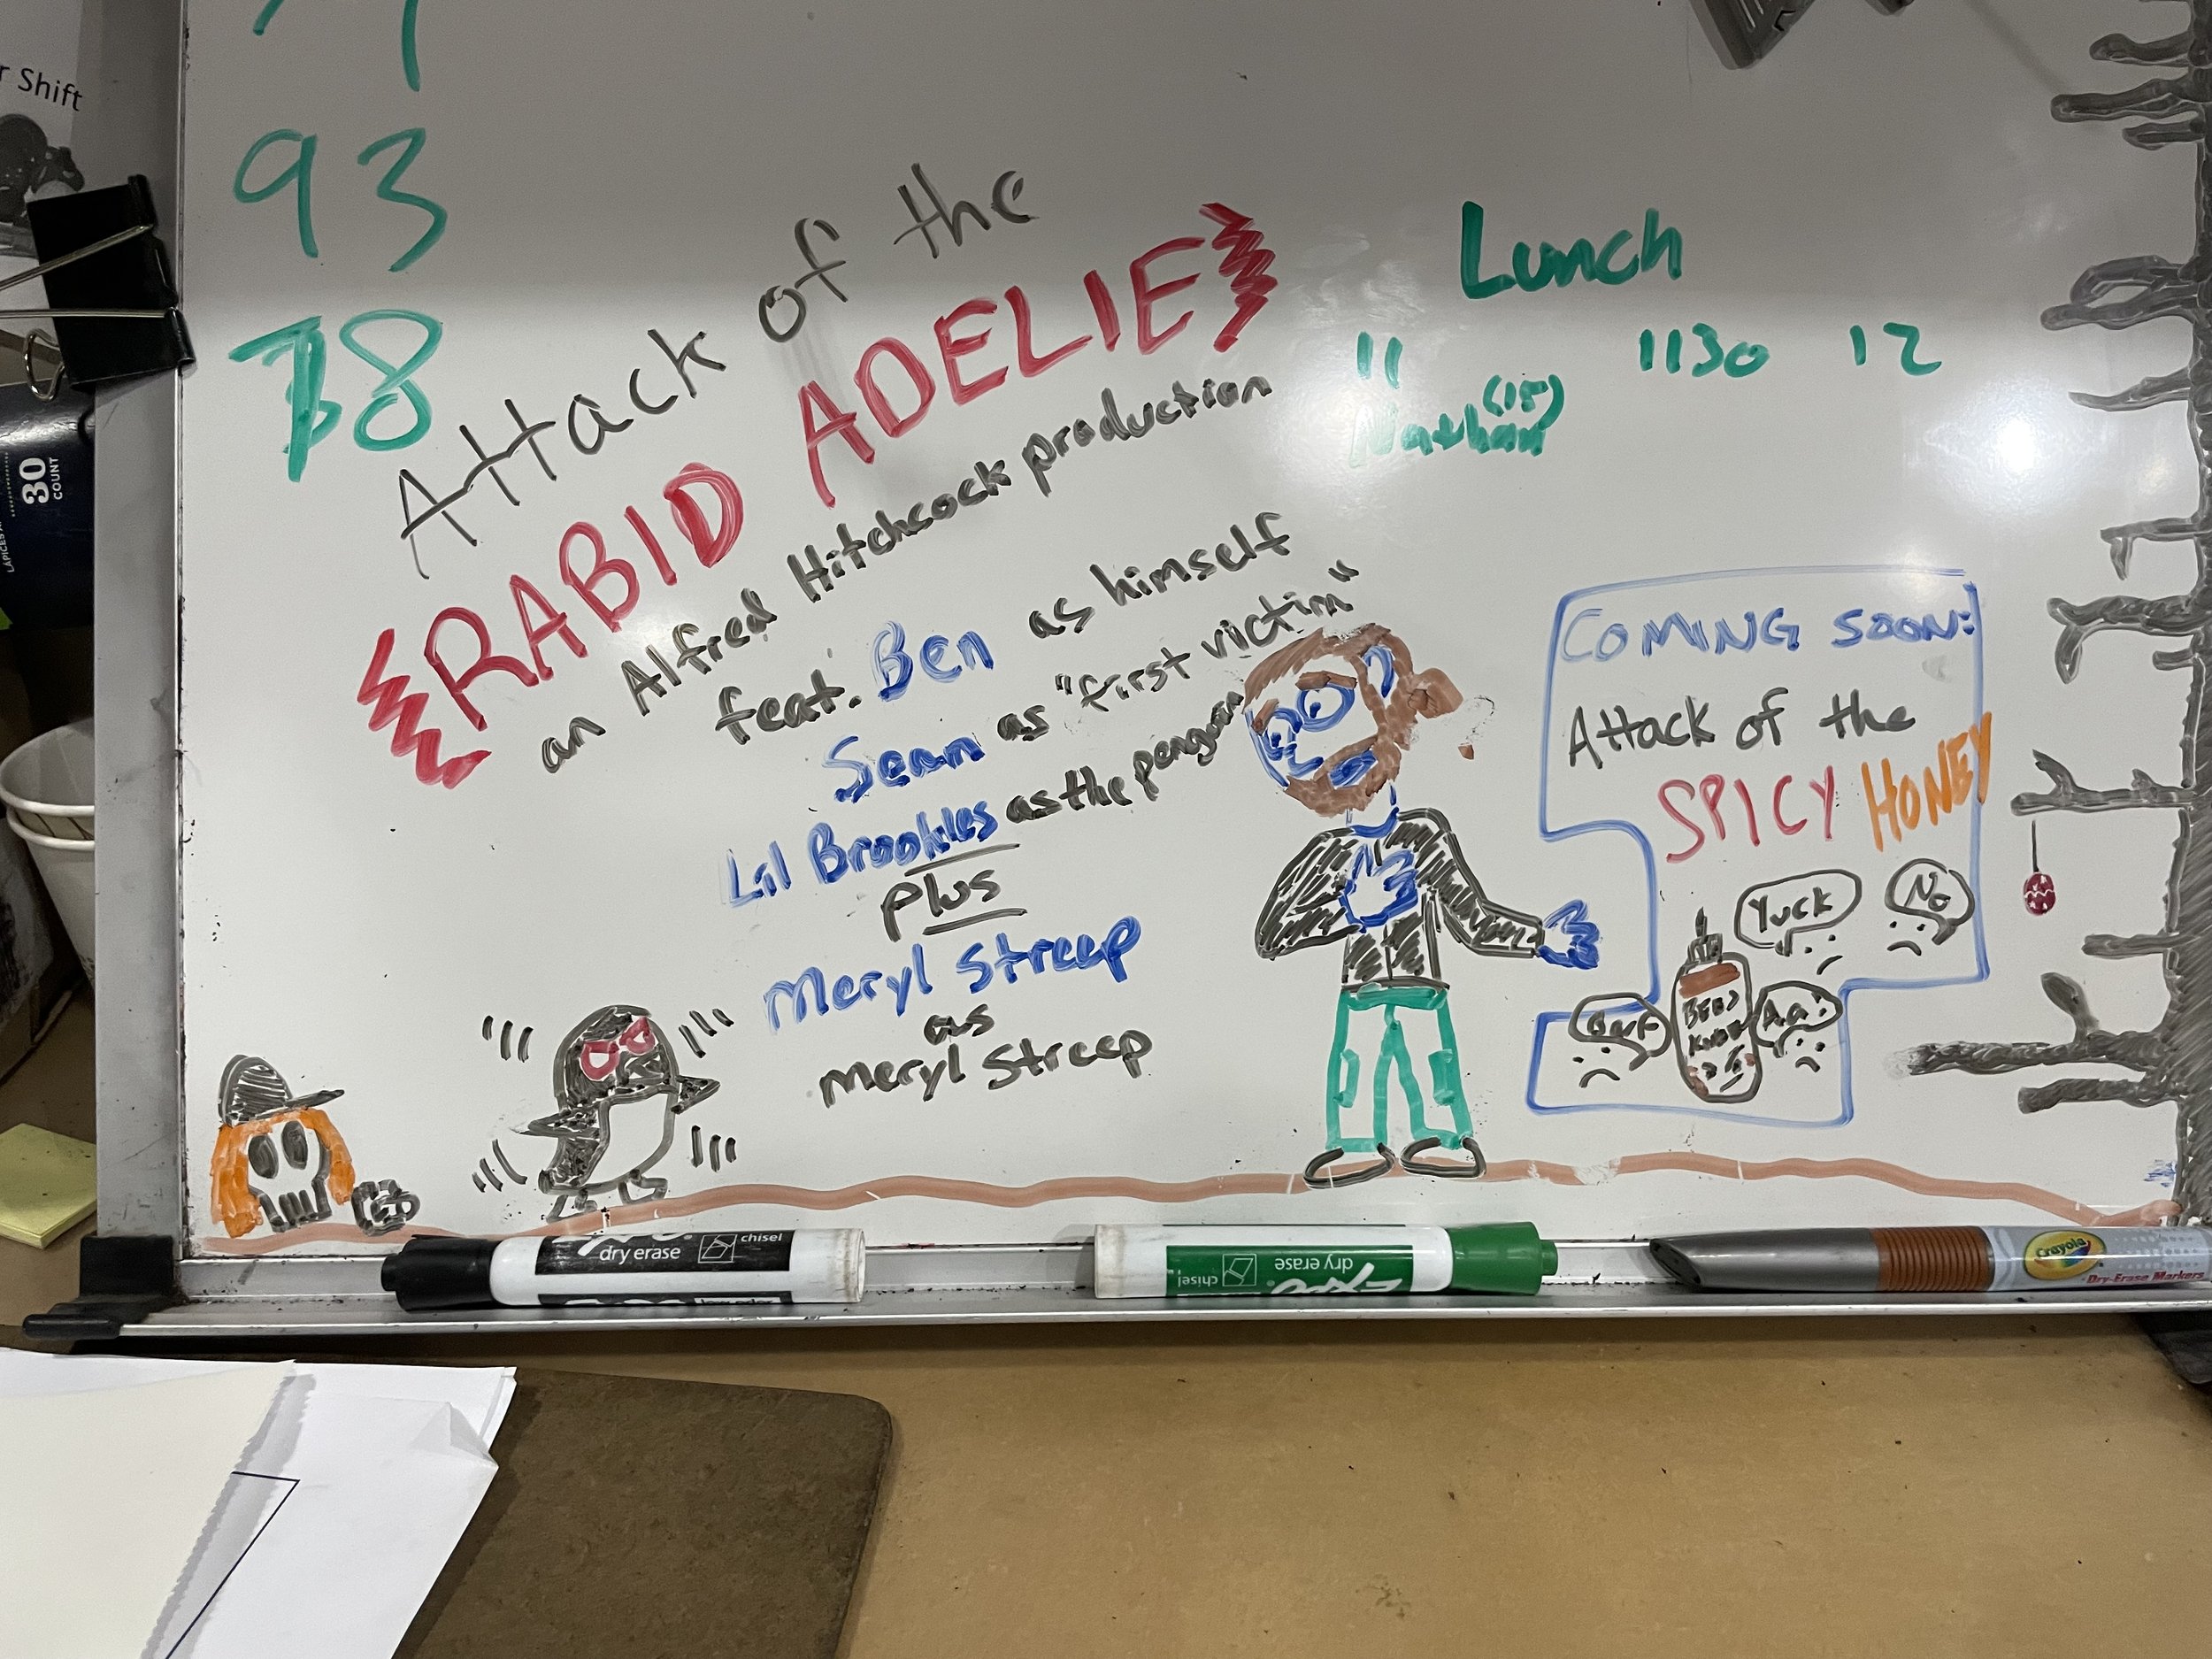 r Shift
93
78
30
COUNT
Attack of the
RABID ADELIE
an Alfred Hitchcock production
feat. Ben as himself
Sean as "first victim"
Lil Brookles as the penguin
plus
Meryl Streep
as
Meryl Streep
Lunch
11 1130 12
Nathan (15)
COMING SOON:
Attack of the
SPICY HONEY
Yuck
No
Barf
BEN'S
Aa!
dry erase
chisel
low odor
EXPO
dry erase
chisel
Crayola
Dry-Erase Markers